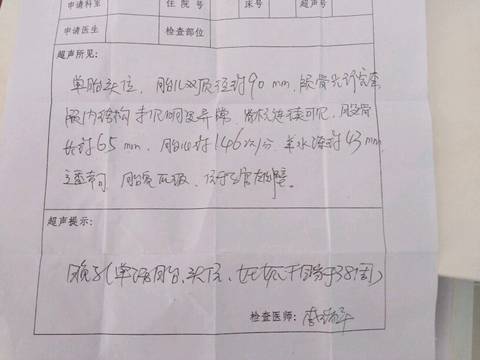 申请科室 住院号 床号 超声号
申请医生 检查部位
超声所见:
单胎头位,胎儿双顶径约90mm,颅骨光环完整,
颅内结构未见明显异常,脊柱连续可见,股骨
长约65mm,胎心约146次/分,羊水深约43mm,
透声可,胎盘Ⅱ级,位于子宫左侧壁。
超声提示:
晚孕(单活胎,头位,如孕 相当于38周)
检查医师: